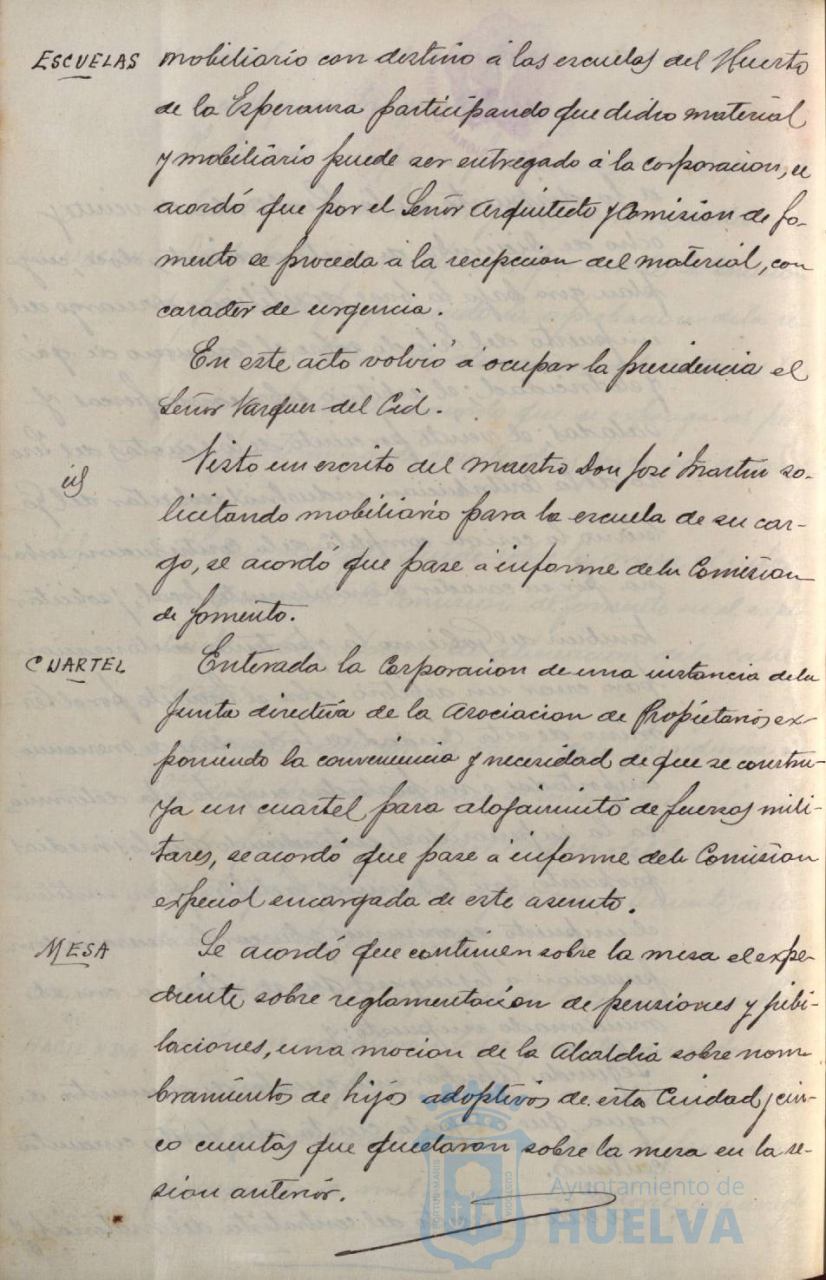 ESCUELAS
mobiliario con destino á las escuelas del Huerto
de la Esperanza participando que dicho material
y mobiliario puede ser entregado á la corporacion, se
acordó que por el Señor Arquitecto y Comision de fo-
mento se proceda á la recepcion del material, con
caracter de urgencia.
En este acto volvió á ocupar la presidencia el
Señor Vazquez del Cid.
id
Visto un escrito del maestro Don José Martin so-
licitando mobiliario para la escuela de su car-
go, se acordó que pase á informe de la Comision
de fomento.
CUARTEL
Enterada la Corporacion de una instancia de la
Junta directiva de la Asociacion de Propietarios ex-
poniendo la conveniencia y necesidad de que se constru-
ya un cuartel para alojamiento de fuerzas mili-
tares, se acordó que pase á informe de la Comision
especial encargada de este asunto.
MESA
Se acordó que continuen sobre la mesa el expe-
diente sobre reglamentacion de pensiones y jubi-
laciones, una mocion de la Alcaldia sobre nom
bramientos de hijos adoptivos de esta Ciudad y cin-
co cuentas que quedaron sobre la mesa en la se-
sion anterior.
Ayuntamiento de
HUELVA